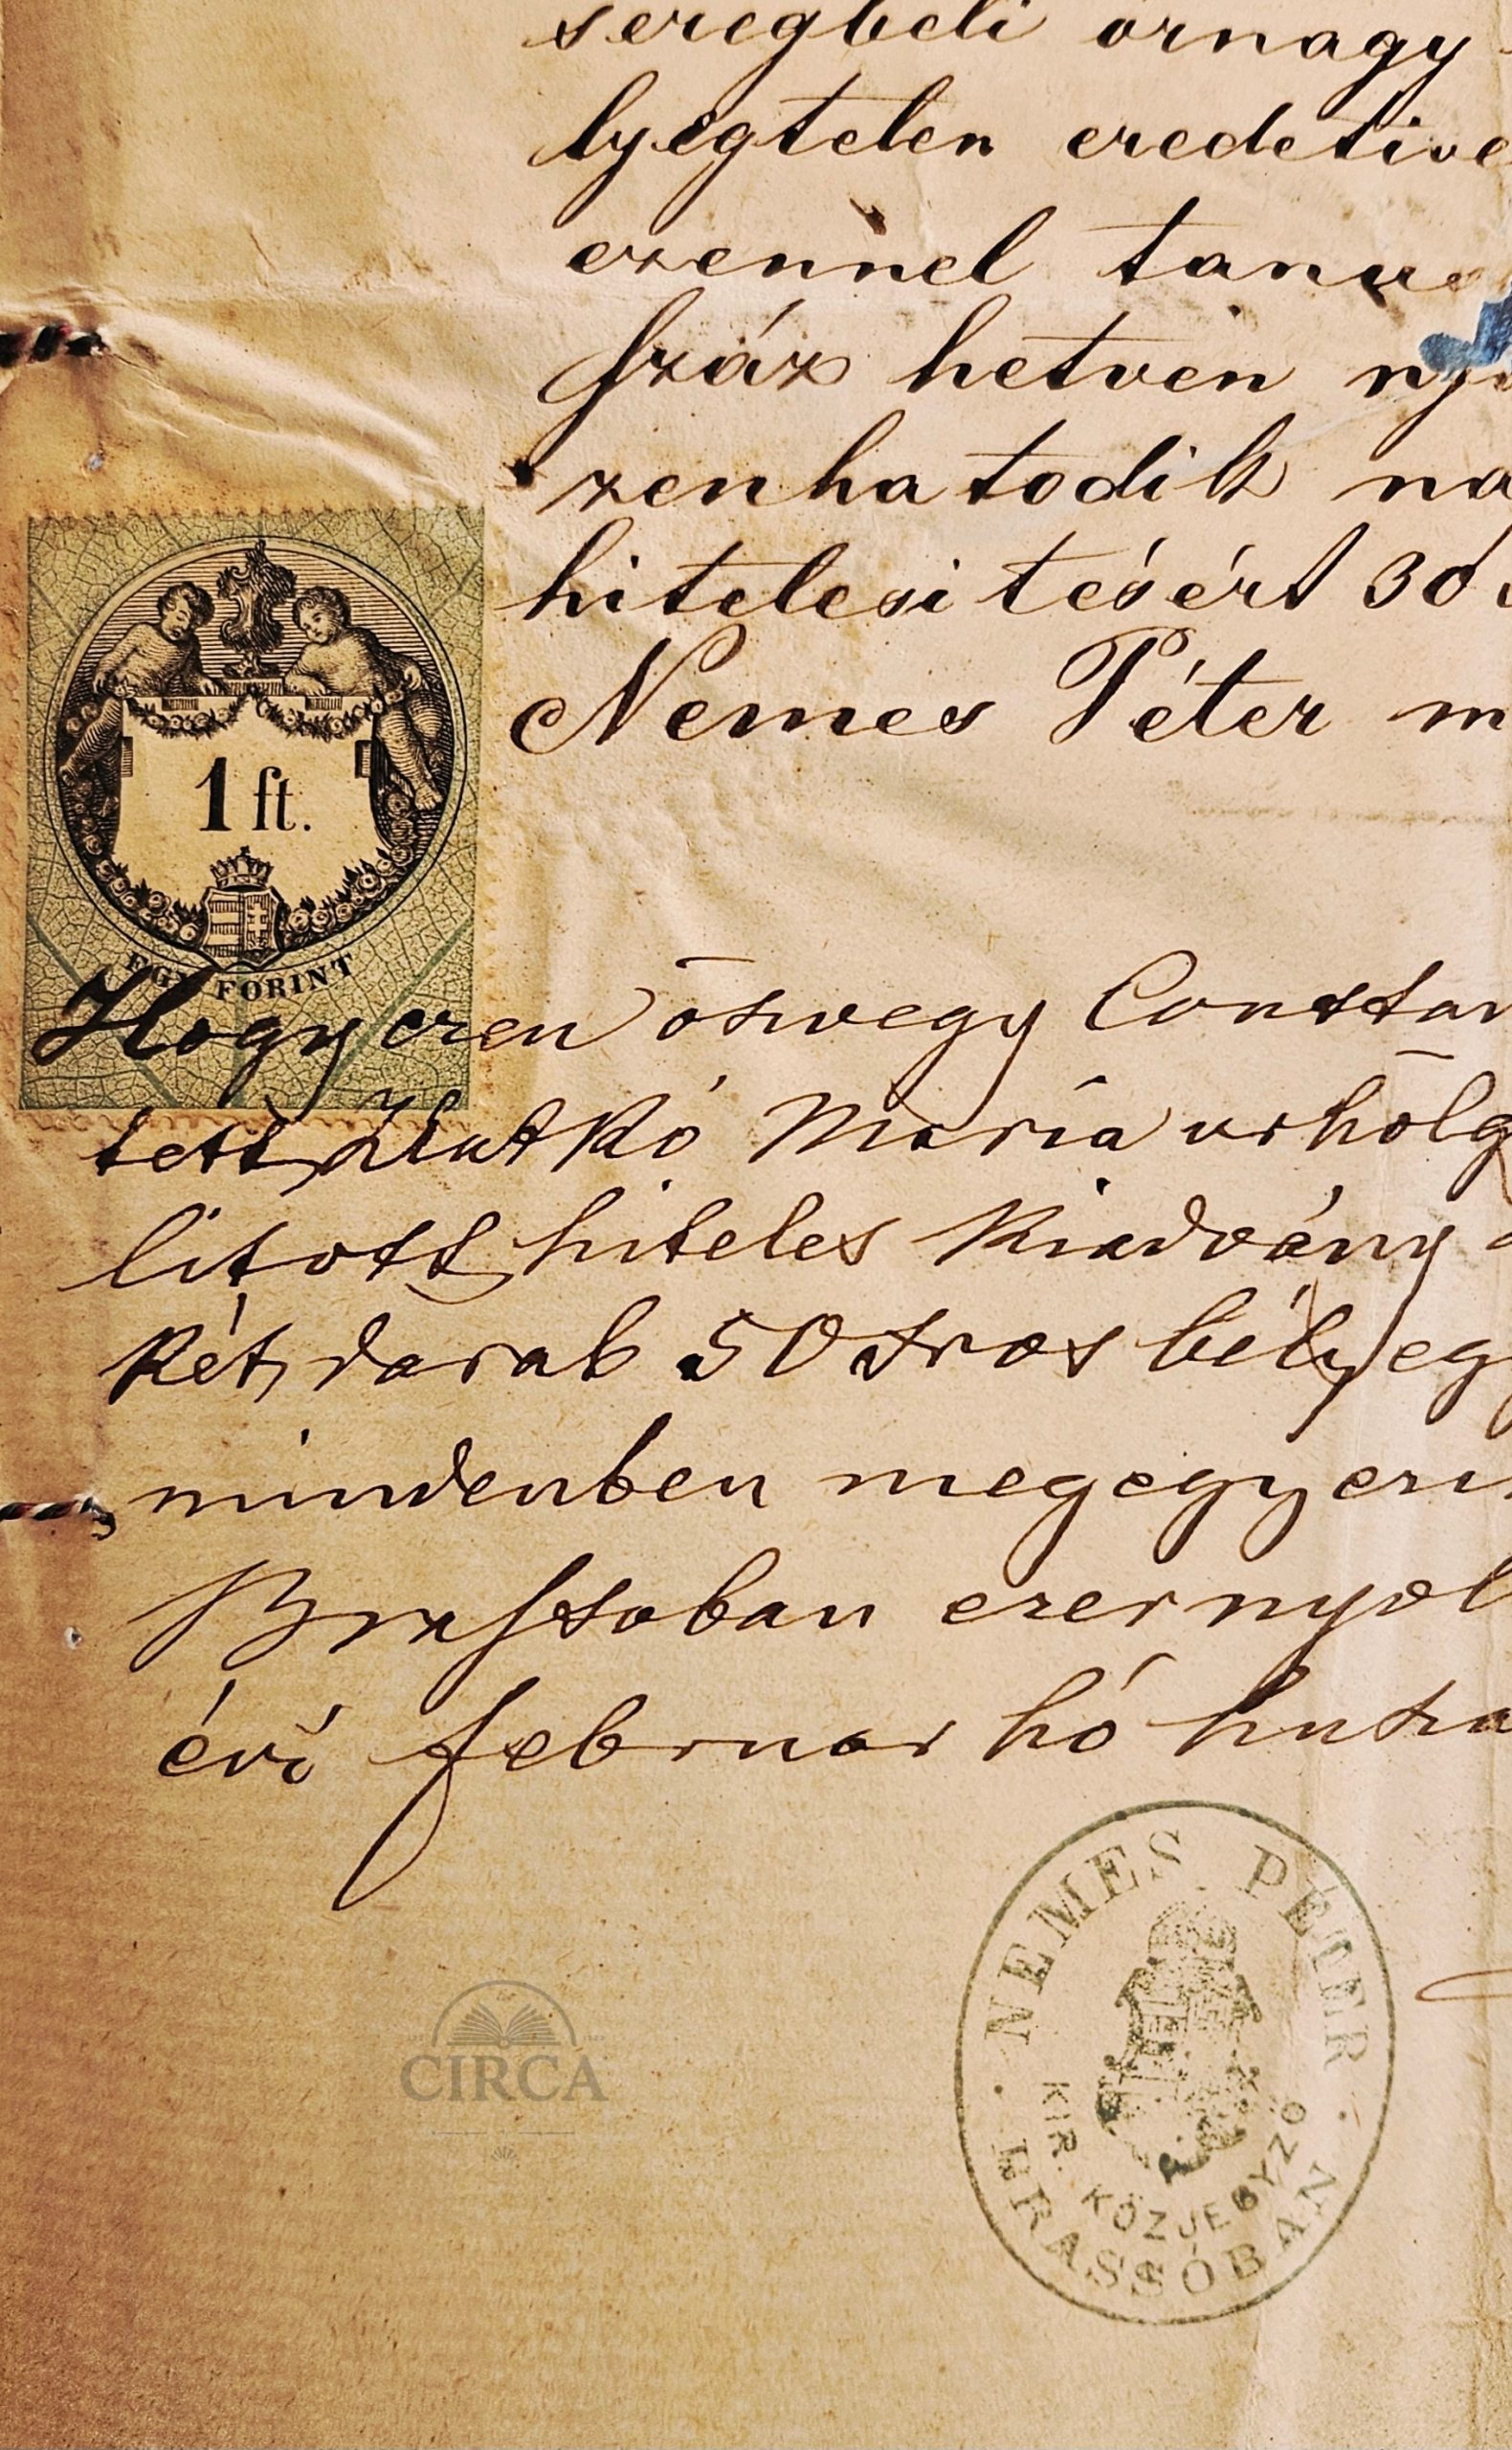 seregbeli őrnagy
lyegtelen eredetive
ezennel tanus
száz hetven nyo
zenhatodik na
hitelesitésért 30
Nemes Péter m
1 ft.
EGY FORINT
Hogy ezen özvegy Constan
tett Zlatkó Mária urhölg
litott hiteles kiadvány a
két darab 50 kros bélyeg
mindenben megegyezi
Brassoban ezernyol
évi februar hó husza
NEMES PÉTER
KIR. KÖZJEGYZŐ
BRASSÓBAN
CIRCA